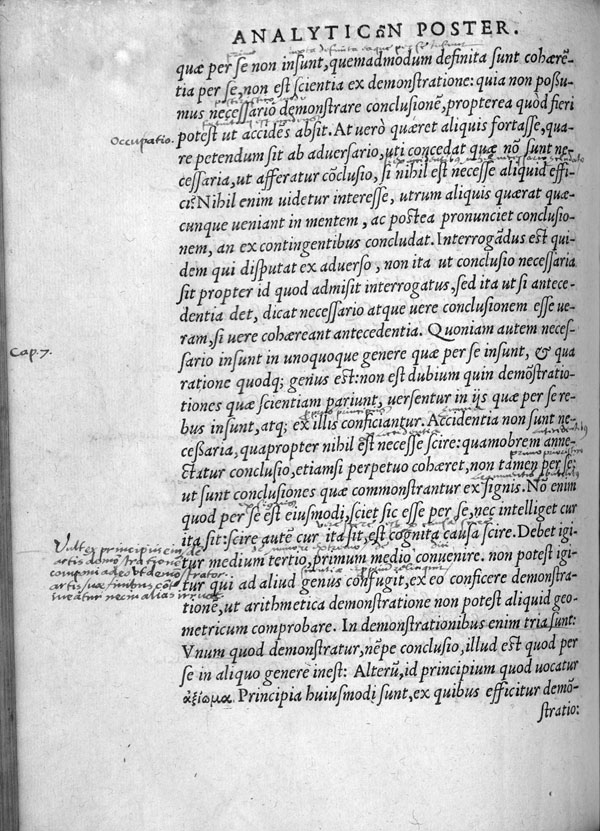 ANALYTICῶN POSTER.
quæ per se non insunt, quemadmodum definita sunt cohærē-
tia per se, non est scientia ex demonstratione: quia non possu-
mus necessario demonstrare conclusionē, propterea quòd fieri
Occupatio.
potest ut accidēs absit. At uerò quæret aliquis fortasse, qua-
re petendum sit ab aduersario, uti concedat quæ nō sunt ne-
cessaria, ut afferatur cōclusio, si nihil est necesse aliquid effi-
ci: Nihil enim uidetur interesse, utrum aliquis quærat quæ-
cunque ueniant in mentem, ac postea pronunciet conclusio-
nem, an ex contingentibus concludat. Interrogādus est qui-
dem qui disputat ex aduerso, non ita ut conclusio necessaria
sit propter id quod admisit interrogatus, sed ita ut si antece-
dentia det, dicat necessario atque uere conclusionem esse ue-
ram, si uere cohæreant antecedentia. Quoniam autem neces-
Cap. 7.
sario insunt in unoquoque genere quæ per se insunt, & qua
ratione quodq; genus est: non est dubium quin demōstratio-
tiones quæ scientiam pariunt, uersentur in ijs quæ per se re-
bus insunt, atq; ex illis conficiantur. Accidentia non sunt ne-
cessaria, quapropter nihil est necesse scire: quamobrem anne-
ctatur conclusio, etiamsi perpetuo cohæret, non tamen per se:
ut sunt conclusiones quæ commonstrantur ex signis. Nō enim
quod per se est eiusmodi, sciet sic esse per se, nec intelliget cur
ita sit: scire autē cur ita sit, est cognita causa scire. Debet igi-
tur medium tertio, primum medio conuenire. non potest igi-
tur qui ad aliud genus confugit, ex eo conficere demonstra-
tionē, ut arithmetica demonstratione non potest aliquid geo-
metricum comprobare. In demonstrationibus enim tria sunt:
Vnum quod demonstratur, nēpe conclusio, illud est quod per
se in aliquo genere inest: Alterū, id principium quod uocatur
ἀξίωμα. Principia huiusmodi sunt, ex quibus efficitur demō-
stratio: